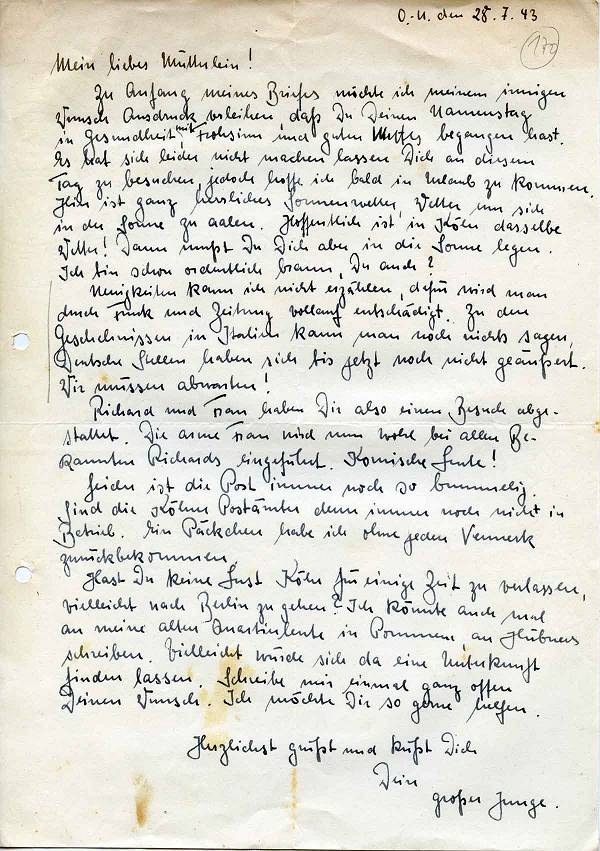 O.-U. den 28.7.43
170
Mein liebes Mütterlein!
Zu Anfang meines Briefes möchte ich meinem innigen
Wunsch Ausdruck verleihen, daß Du Deinen Namenstag
in Gesundheit, mit Frohsinn und guten Mutes begangen hast.
Es hat sich leider nicht machen lassen Dich an diesem
Tag zu besuchen, jedoch hoffe ich bald in Urlaub zu kommen.
Hier ist ganz herrliches Sonnenwetter, Wetter um sich
in der Sonne zu aalen. Hoffentlich ist in Köln dasselbe
Wetter! Dann mußt Du Dich aber in die Sonne legen.
Ich bin schon ordentlich braun, Du auch?
Neuigkeiten kann ich nicht erzählen, dafür wird man
durch Funk und Zeitung vollauf entschädigt. Zu den
Geschehnissen in Italien kann man noch nichts sagen,
Deutsche Stellen haben sich bis jetzt noch nicht geäußert.
Wir müssen abwarten!
Richard und Frau haben Dir also einen Besuch abge-
stattet. Die arme Frau wird nun wohl bei allen Be-
kannten Richards eingeführt. Komische Leute!
Leider ist die Post immer noch so bummelig.
Sind die Kölner Postämter denn immer noch nicht in
Betrieb. Ein Päckchen habe ich ohne jeden Vermerk
zurückbekommen.
Hast Du keine Lust Köln für einige Zeit zu verlassen,
vielleicht nach Berlin zu gehen? Ich könnte auch mal
an meine alten Quartiersleute in Pommern, an Hübners
schreiben. Vielleicht würde sich da eine Unterkunft
finden lassen. Schreibe mir einmal ganz offen
Deinen Wunsch. Ich möchte Dir so gerne helfen.
Herzlichst grüßt und küßt Dich
Dein
großer Junge.